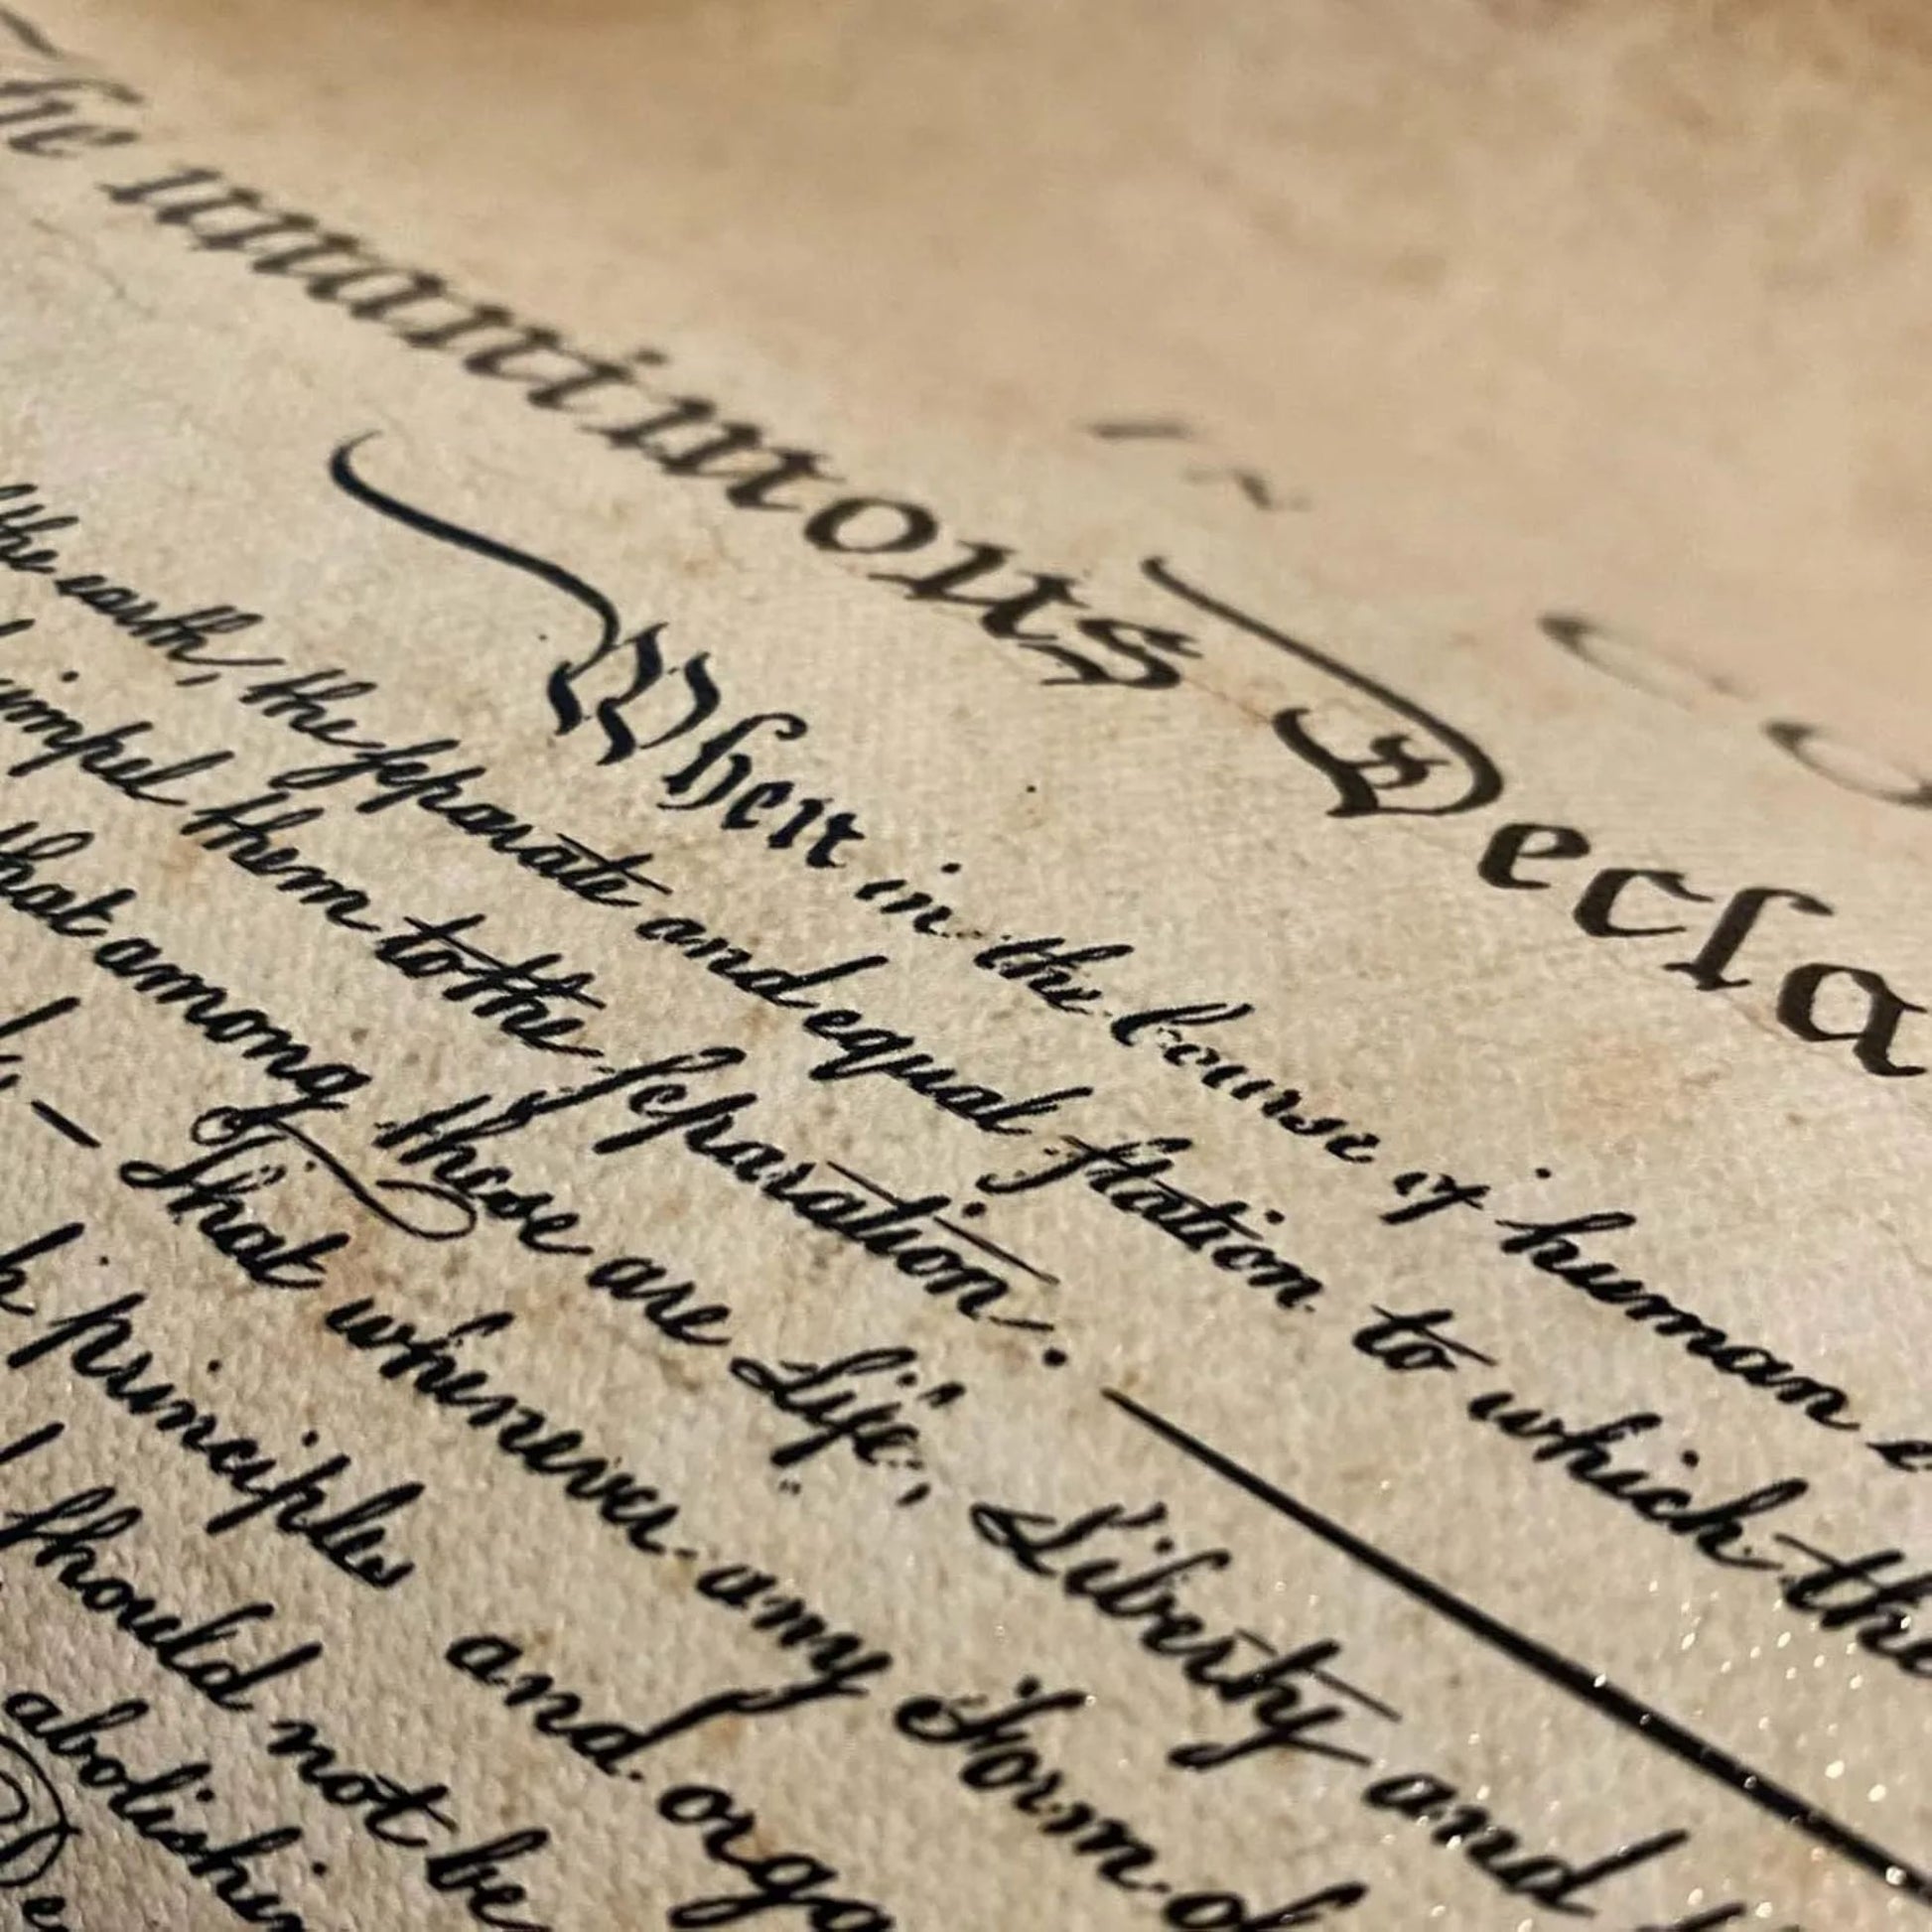 The unanimous Decla
When in the Course of human
the earth, the ſeparate and equal ſtation to which the
impel them to the ſeparation.
that among these are Life, Liberty and
— That whenever any Form of
principles and orga
ſhould not be
abolishi